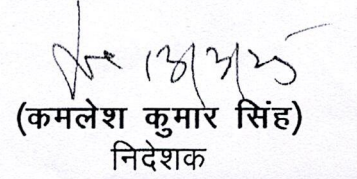 13/3/25
(कमलेश कुमार सिंह)
निदेशक